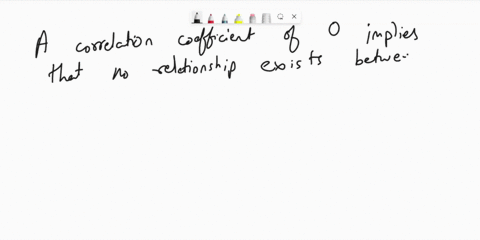 A correlation coefficient of 0 implies
that no relationship exists betwe